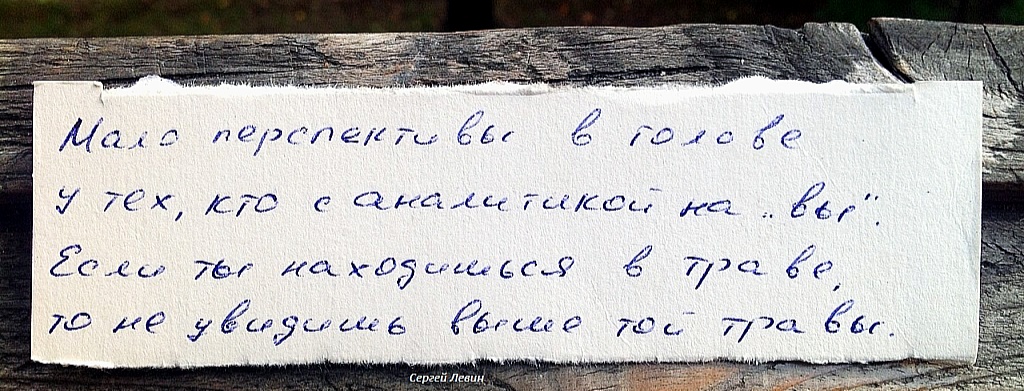 Мало перспективы в голове
у тех, кто с аналитикой на „вы".
Если ты находишься в траве,
то не увидишь выше той травы.
Сергей Левин